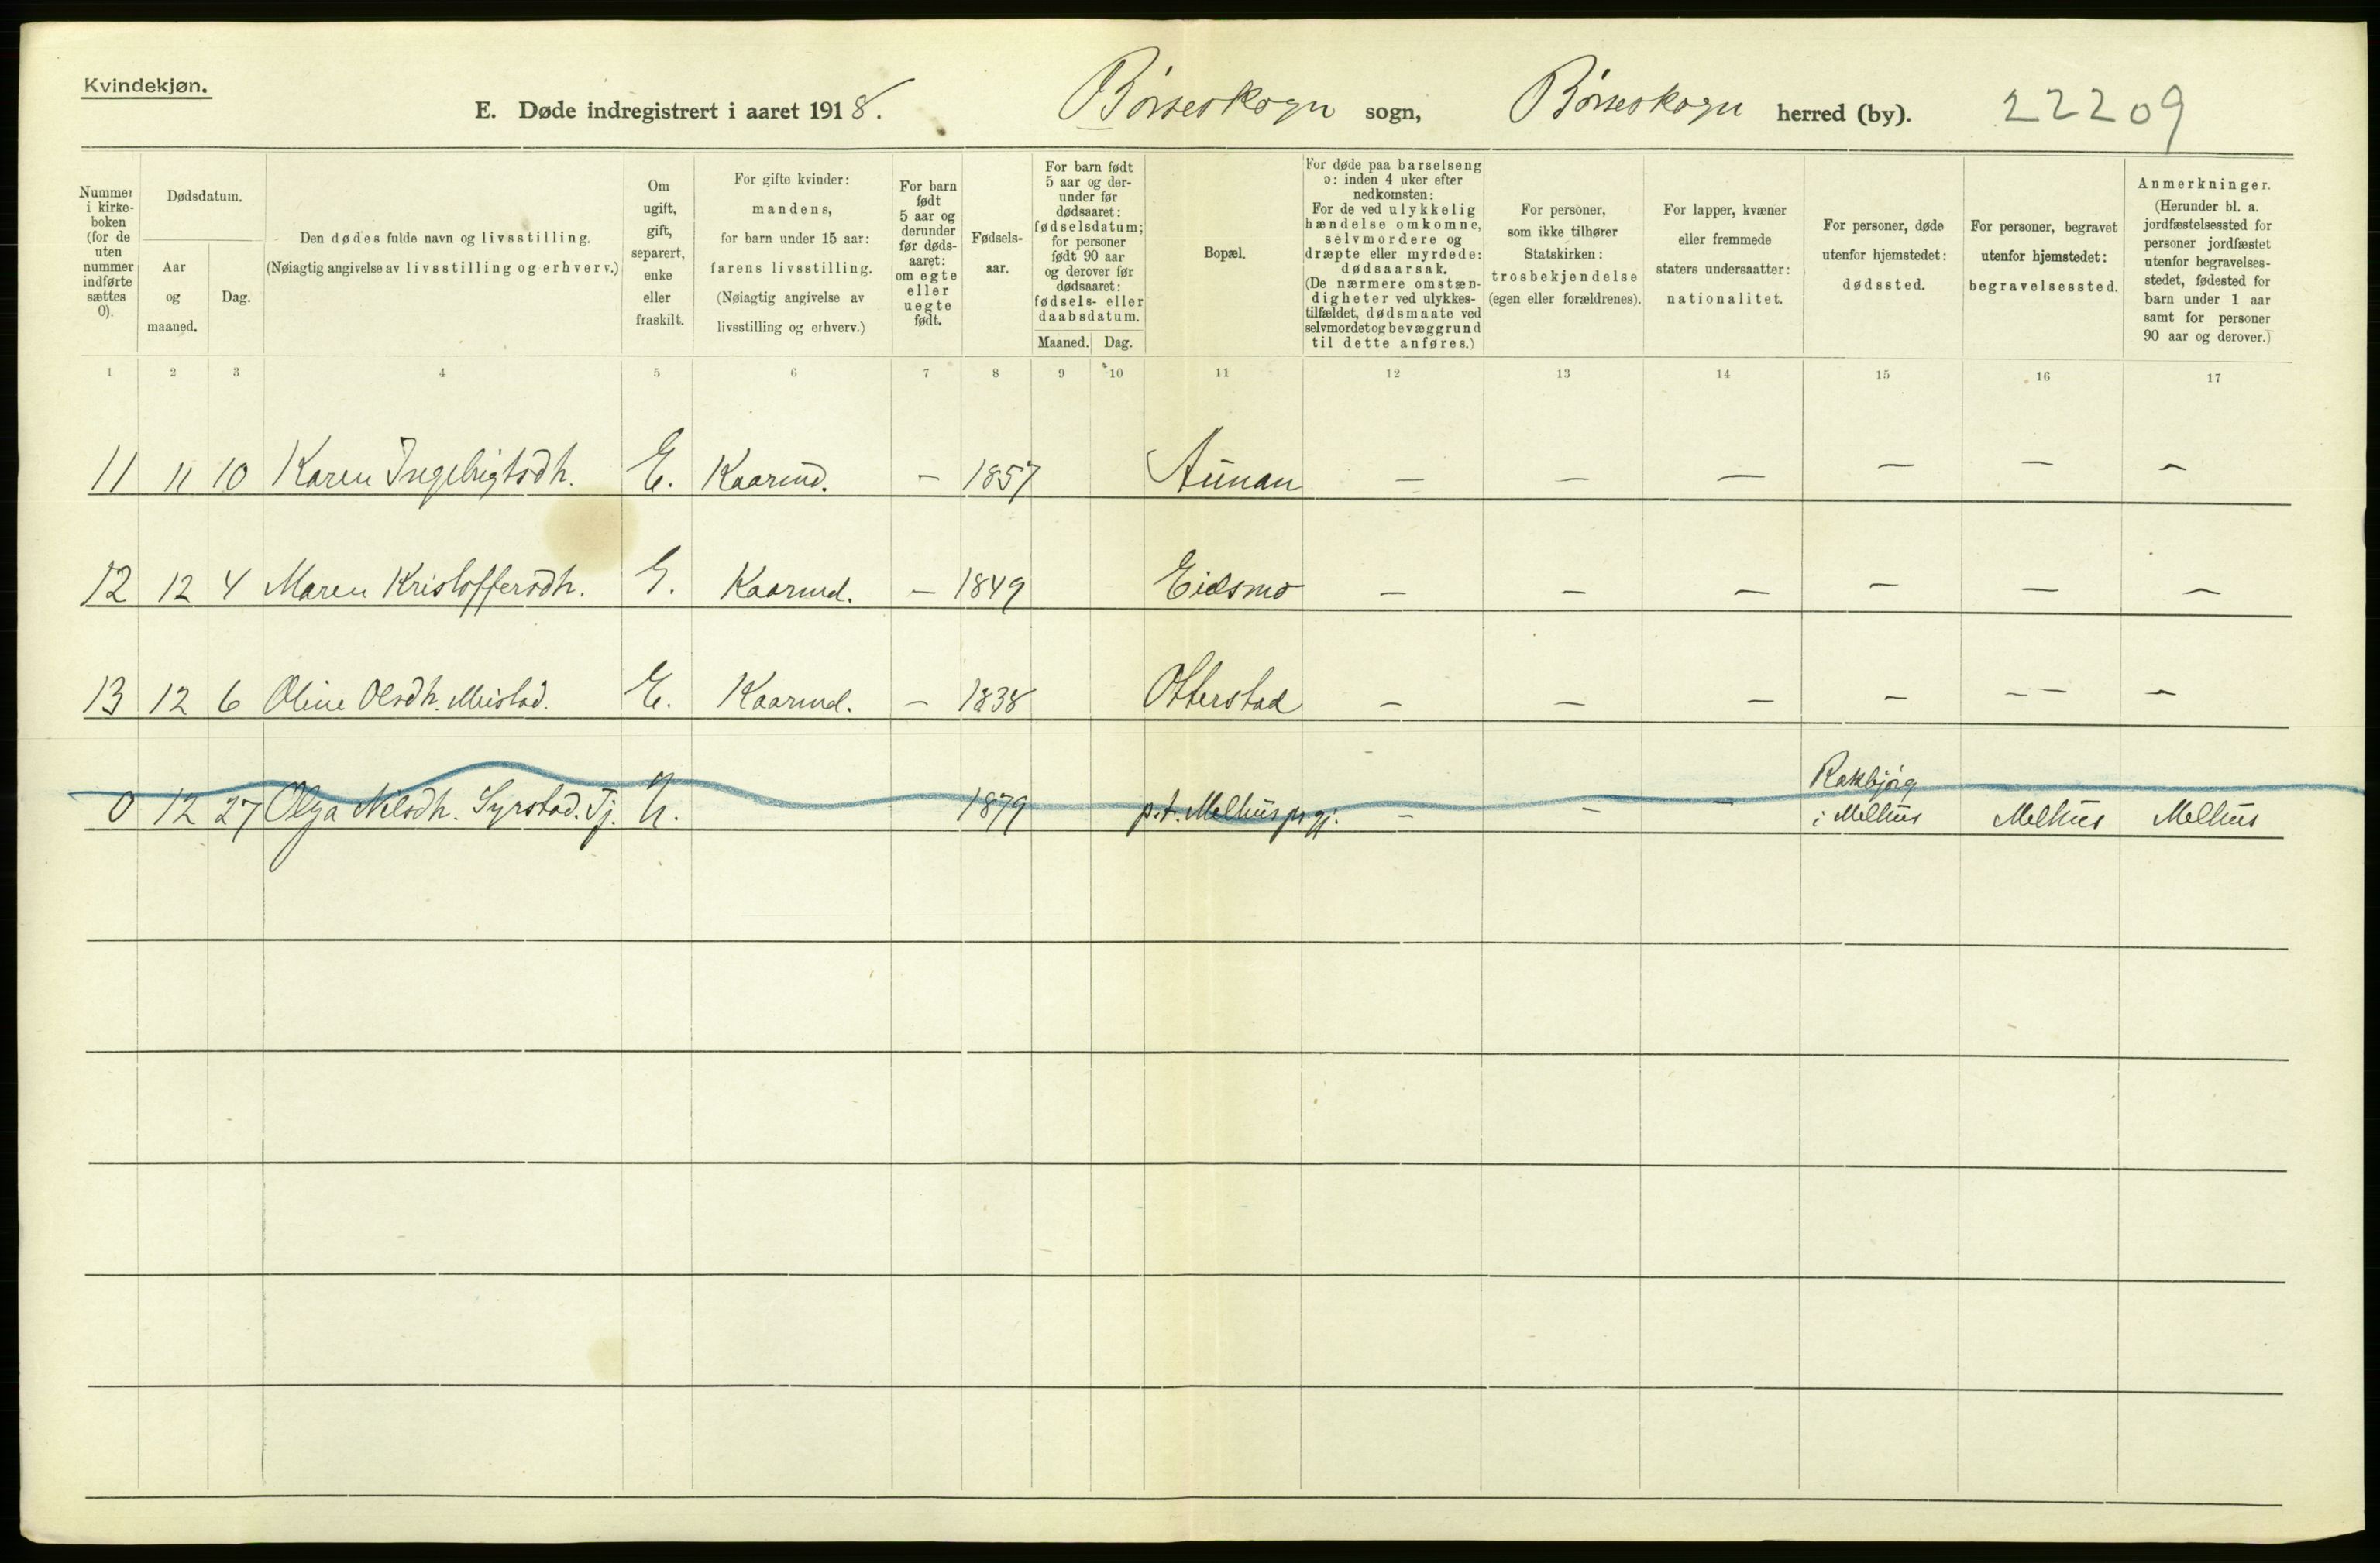 Kvindekjøn.
E. Døde indregistrert i aaret 1918. Børseskogn sogn, Børseskogn herred (by). 22209
Nummer i kirke-boken (for de uten nummer indførte sættes 0).
Dødsdatum.
Aar og maaned.
Dag.
Den dødes fulde navn og livsstilling.
(Nøiagtig angivelse av livsstilling og erhverv.)
Om ugift, gift, separert, enke eller fraskilt.
For gifte kvinder: mandens, for barn under 15 aar: farens livsstilling. (Nøiagtig angivelse av livsstilling og erhverv.)
For barn født 5 aar og derunder før døds-aaret: om egte eller uegte født.
Fødsels-aar.
For barn født 5 aar og der-under før dødsaaret: fødselsdatum; for personer født 90 aar og derover før dødsaaret: fødsels- eller daabsdatum.
Maaned. Dag.
Bopæl.
For døde paa barselseng ɔ: inden 4 uker efter nedkomsten: For de ved ulykkelig hændelse omkomne, selvmordere og dræpte eller myrdede: dødsaarsak. (De nærmere omstæn-digheter ved ulykkes-tilfældet, dødsmaate ved selvmordet og bevæggrund til dette anføres.)
For personer, som ikke tilhører Statskirken: trosbekjendelse (egen eller forældrenes).
For lapper, kvæner eller fremmede staters undersaatter: nationalitet.
For personer, døde utenfor hjemstedet: dødssted.
For personer, begravet utenfor hjemstedet: begravelsessted.
Anmerkninger. (Herunder bl. a. jordfæstelsessted for personer jordfæstet utenfor begravelses-stedet, fødested for barn under 1 aar samt for personer 90 aar og derover.)
1 2 3 4 5 6 7 8 9 10 11 12 13 14 15 16 17
11 11 10 Karen Ingebrigtsdh. E. Kaarmd. — 1857 Aunan — — — — — —
12 12 4 Maren Kristoffersdh. G. Kaarmd. — 1849 Eidsmo — — — — — —
13 12 6 Oline Olsdh. Mistad. E. Kaarmd. — 1838 Otterstad — — — — — — —
0 12 27 Olga Nilsdh. Syrstad. Tj. U. 1879 p.t. Melhus prgj. — — — Rakbjørg i Melhus Melhus Melhus